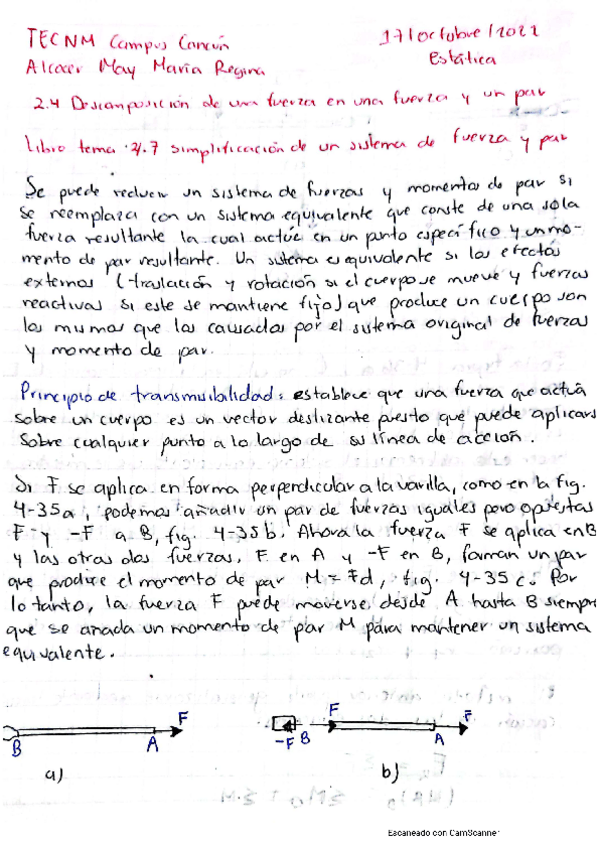 TECNM Campus Cancún
17/octubre/2022
Alcocer May María Regina
Estática
2.4 Descomposición de una fuerza en una fuerza y un par
Libro tema 4.7 simplificación de un sistema de fuerza y par
Se puede reducir un sistema de fuerzas y momentos de par si
se reemplaza con un sistema equivalente que conste de una sola
fuerza resultante la cual actúe en un punto específico y un mo-
mento de par resultante. Un sistema es equivalente si los efectos
externos (traslación y rotación si el cuerpo se mueve y fuerzas
reactivas si este se mantiene fijo) que produce un cuerpo son
los mismos que los causados por el sistema original de fuerzas
y momento de par.
Principio de transmisibilidad: establece que una fuerza que actúa
sobre un cuerpo es un vector deslizante puesto que puede aplicars
sobre cualquier punto a lo largo de su línea de acción.
Si F se aplica en forma perpendicular a la varilla, como en la fig.
4-35a, podemos añadir un par de fuerzas iguales pero opuestas
F y -F a B, fig. 4-35b. Ahora la fuerza F se aplica en B
y las otras dos fuerzas, F en A y -F en B, forman un par
que produce el momento de par M = Fd, fig. 4-35c. Por
lo tanto, la fuerza F puede moverse desde A hasta B siempre
que se añada un momento de par M para mantener un sistema
equivalente.
F
B
A
a)
F
-F
B
A
F
b)
Escaneado con CamScanner